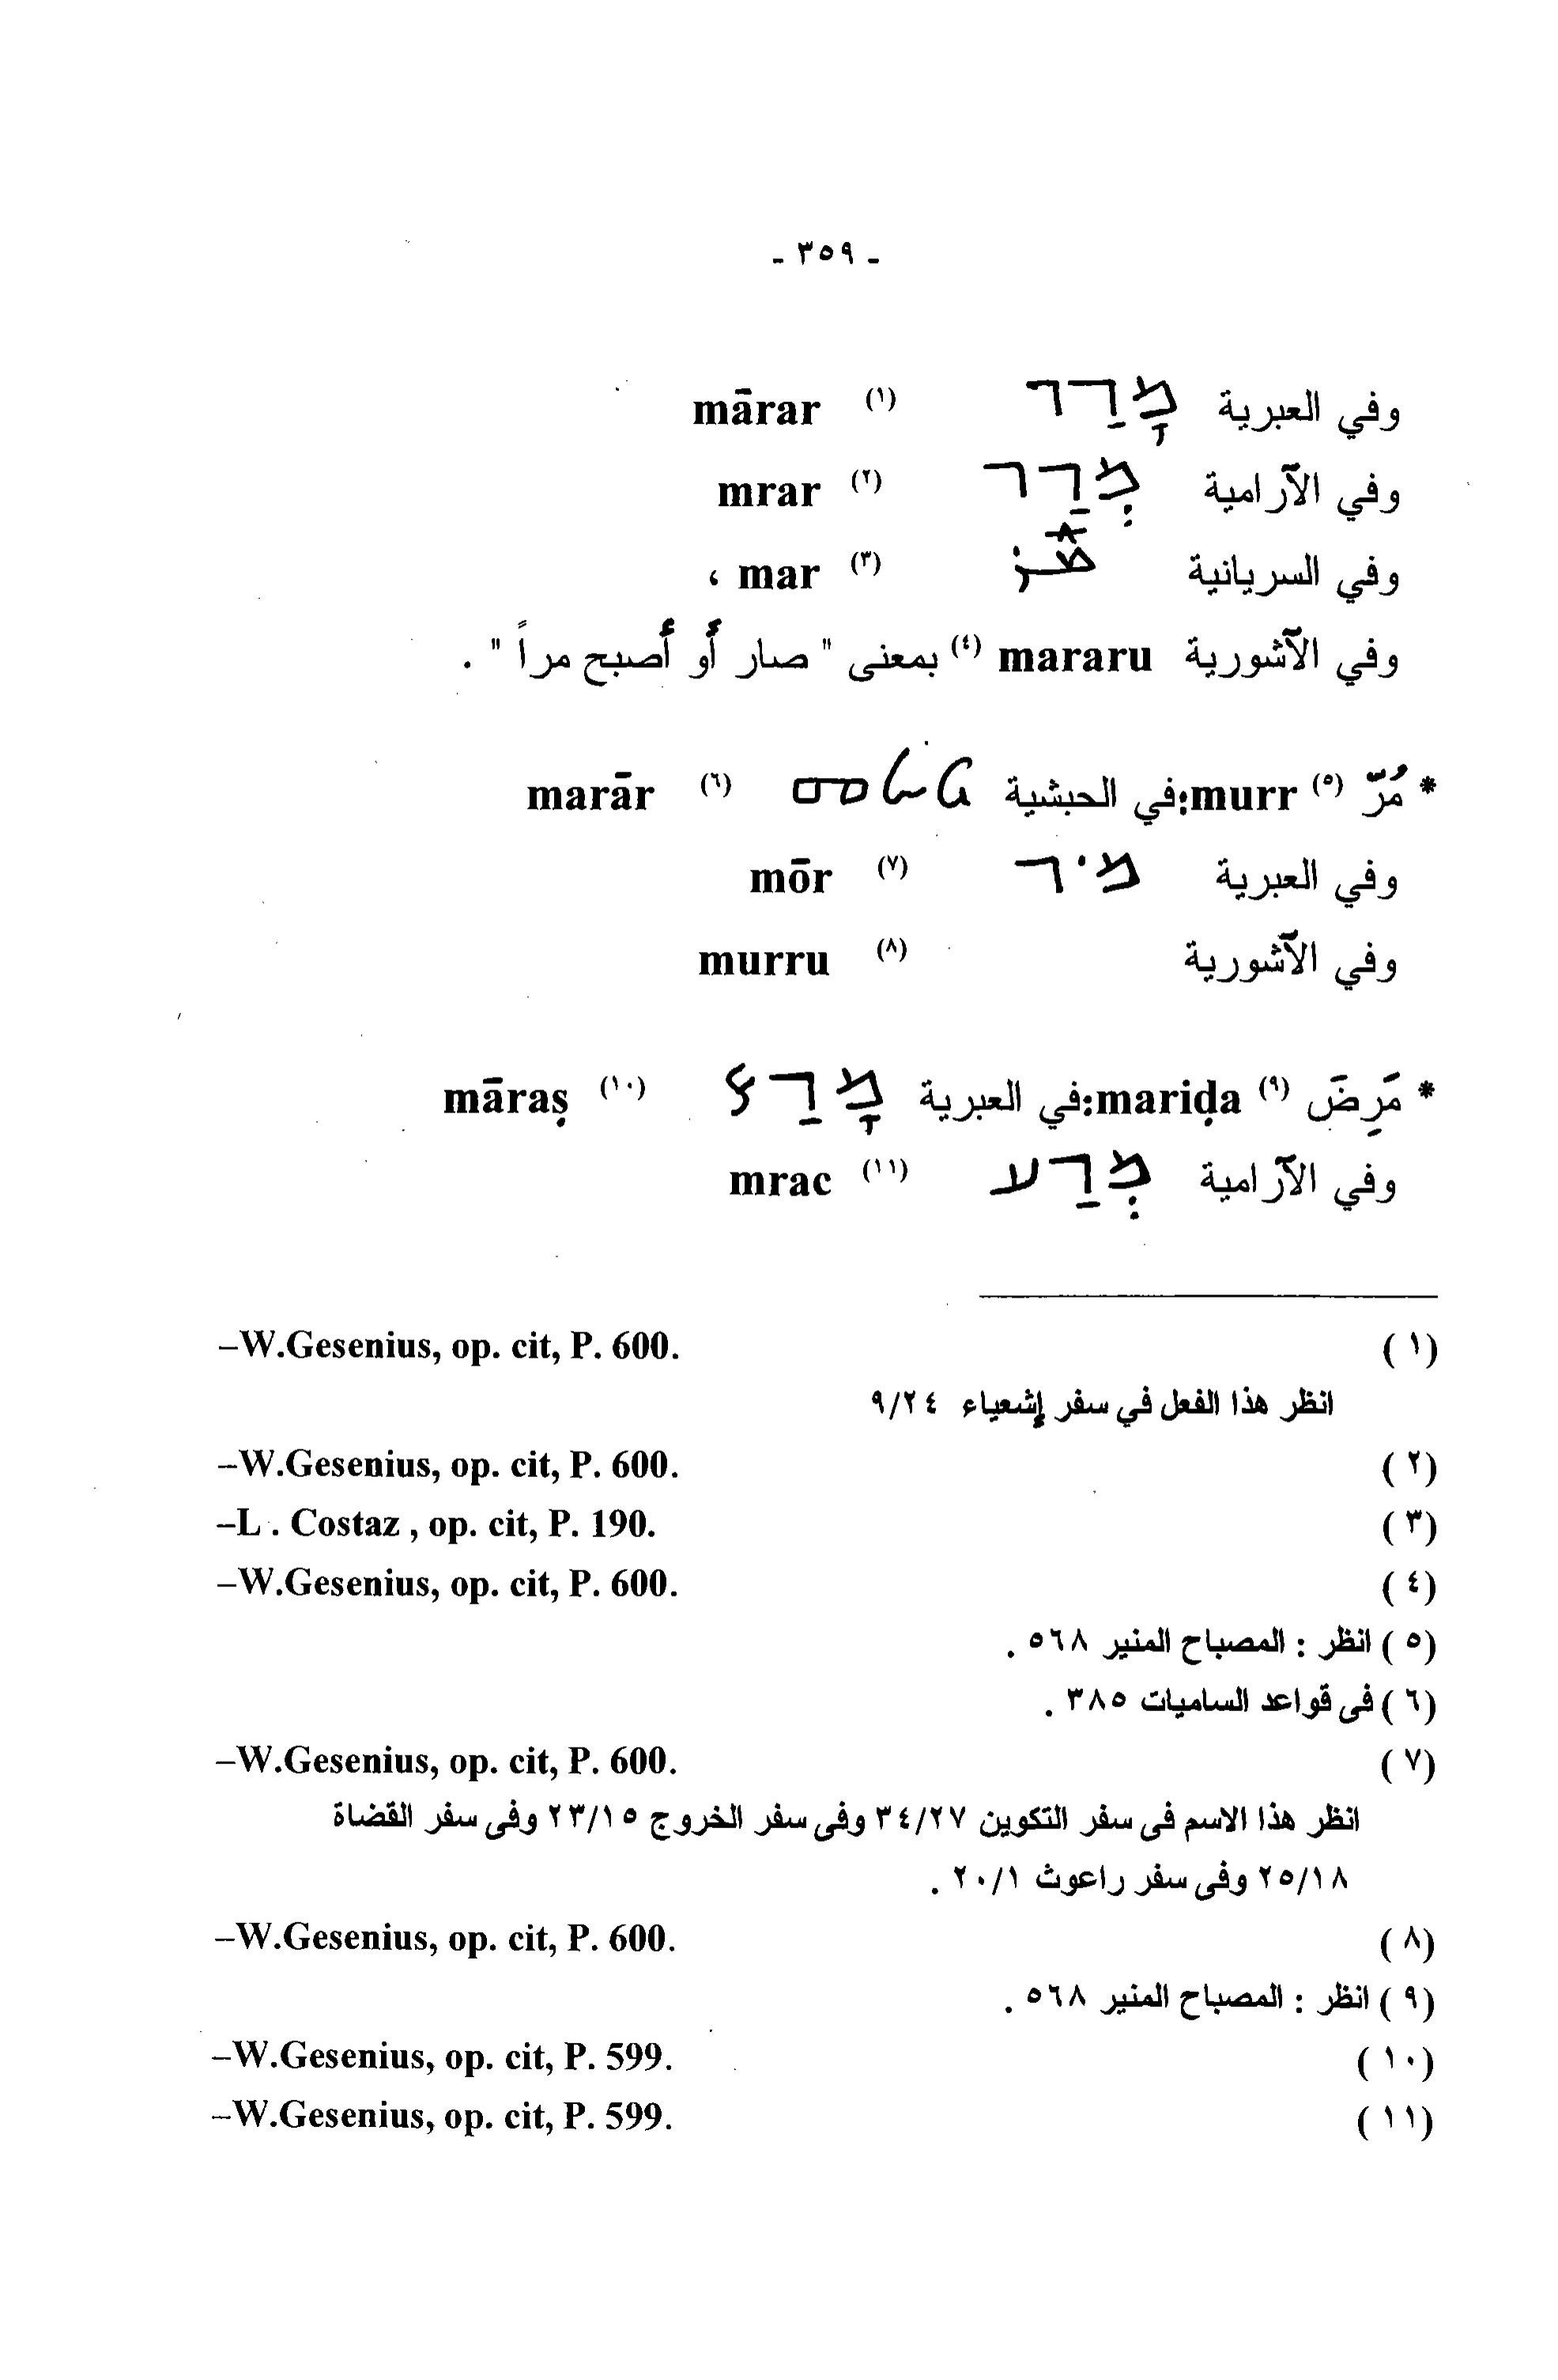 - ٣٥٩ -
وفي العبرية מָרַר (١) mārar
وفي الآرامية מְרַר (٢) mrar
وفي السريانية ܡܰܪ (٣) mar ،
وفي الآشورية mararu (٤) بمعنى " صار أو أصبح مراً " .
* مُرّ (٥) murr:في الحبشية (٦) marār
وفي العبرية מֹר (٧) mōr
وفي الآشورية (٨) murru
* مَرِضَ (٩) mariḍa:في العبرية מָרַץ (١٠) māraṣ
وفي الآرامية מְרַע (١١) mrac
(١) –W.Gesenius, op. cit, P. 600.
انظر هذا الفعل في سفر إشعياء ٩/٢٤
(٢) –W.Gesenius, op. cit, P. 600.
(٣) –L . Costaz , op. cit, P. 190.
(٤) –W.Gesenius, op. cit, P. 600.
(٥) انظر : المصباح المنير ٥٦٨ .
(٦) فى قواعد الساميات ٣٨٥ .
(٧) –W.Gesenius, op. cit, P. 600.
انظر هذا الاسم فى سفر التكوين ٣٤/٢٧ وفى سفر الخروج ٢٣/١٥ وفى سفر القضاة
٢٥/١٨ وفى سفر راعوث ٢٠/١ .
(٨) –W.Gesenius, op. cit, P. 600.
(٩) انظر : المصباح المنير ٥٦٨ .
(١٠) –W.Gesenius, op. cit, P. 599.
(١١) –W.Gesenius, op. cit, P. 599.